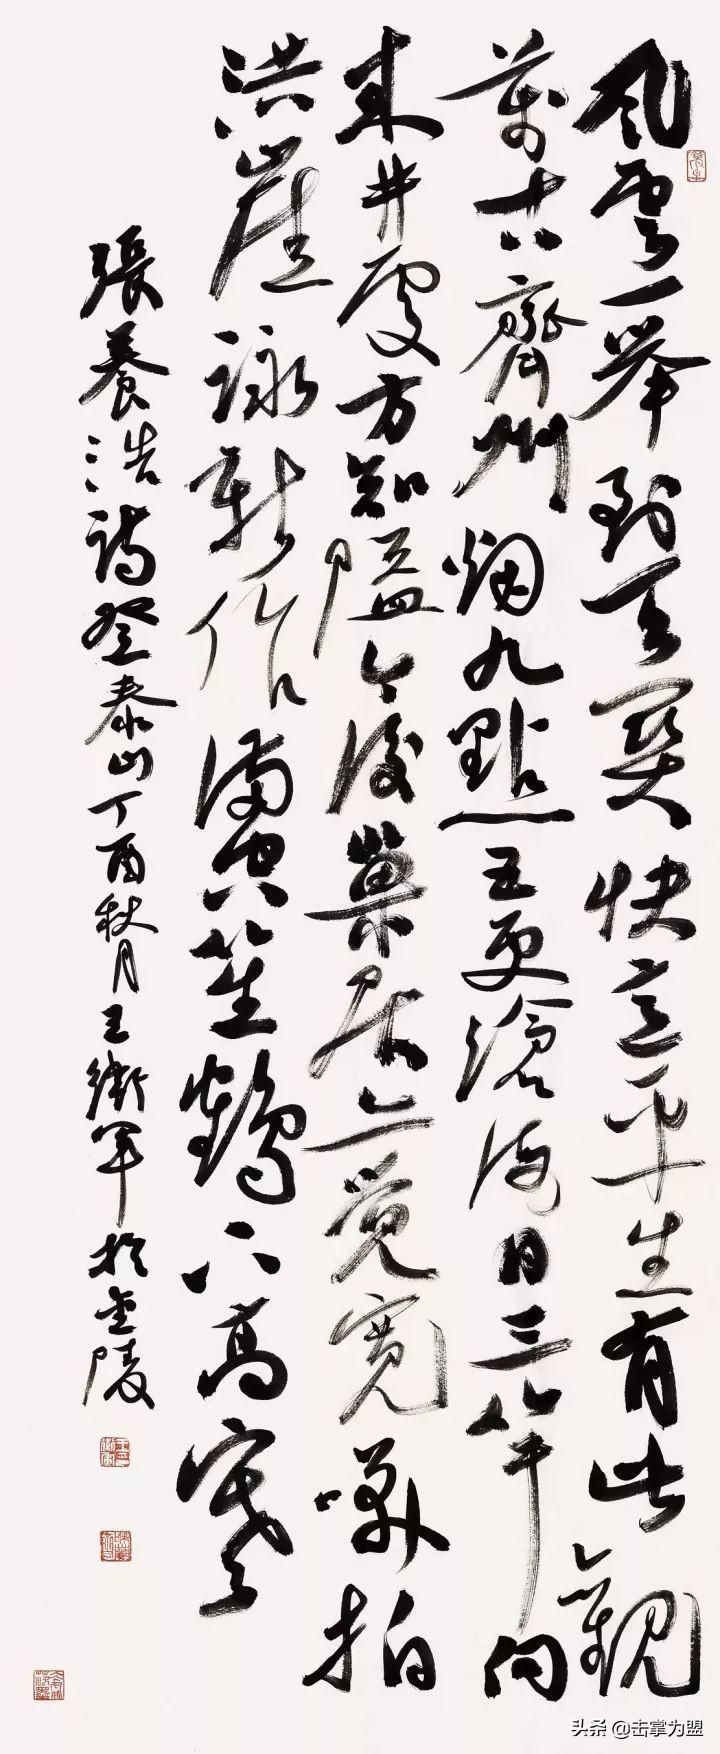 風雲一舉到天関快意平生有此觀
萬古齊州烟九點五更滄海日三竿向
来井處方知隘今後巢居亦覺寬咲拍
洪崖詠新作滿空笙鶴下高寒
張養浩詩登泰山丁酉秋月王衛軍於金陵
头条 @击掌为盟